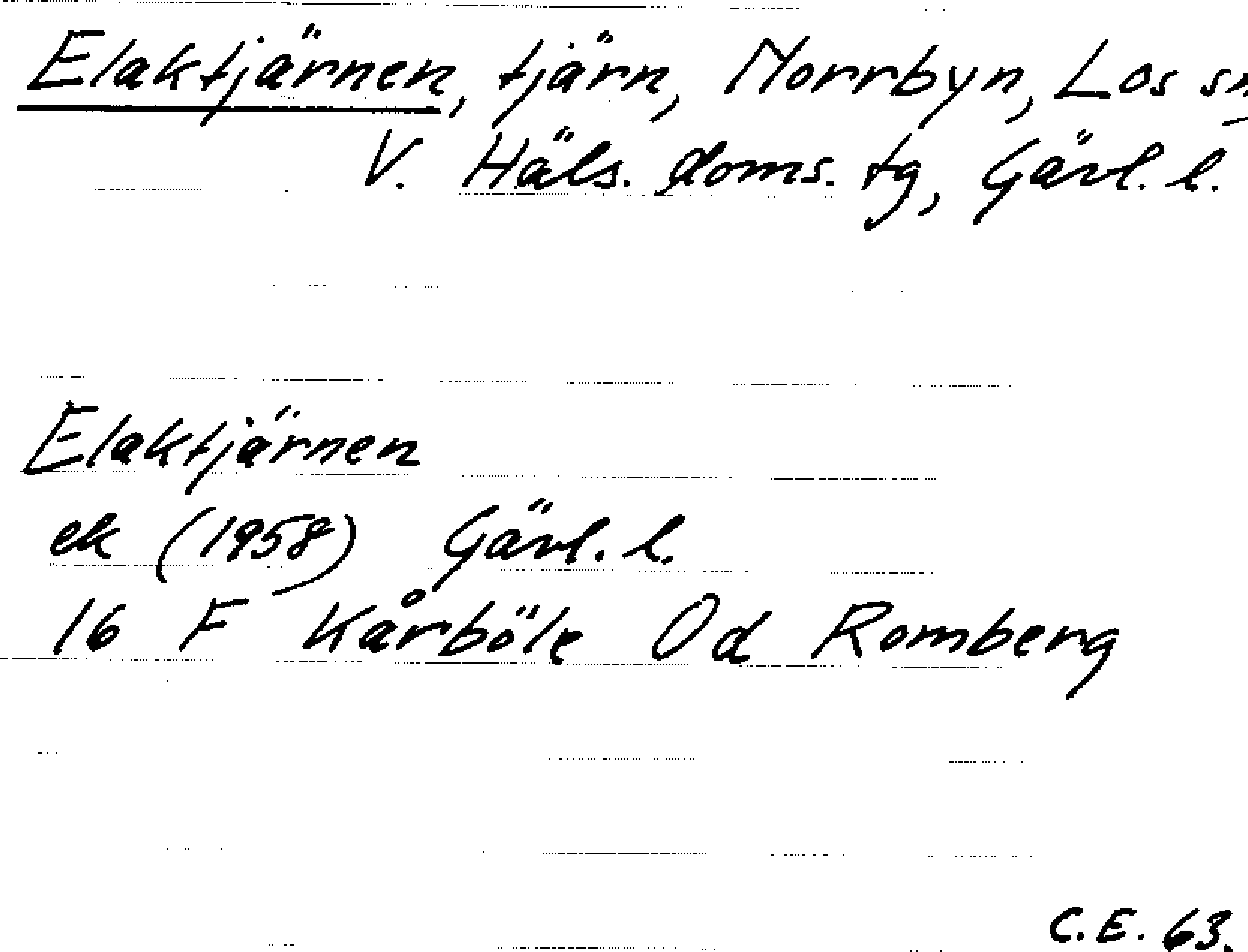 Elaktjärnen, tjärn, Norrbyn, Los sn
V. Häls. doms. tg, Gävl. l.
Elaktjärnen
ek (1958) Gävl. l.
16 F Kårböle Od Romberg
C.E. 63.